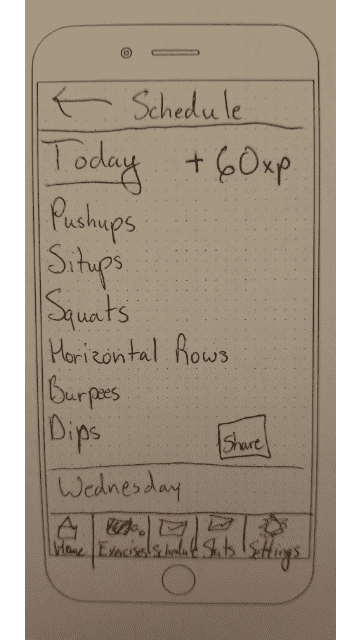 Schedule
Today +60xp
Pushups
Situps
Squats
Horizontal Rows
Burpees
Dips
Share
Wednesday
Home Exercises Schedule Stats Settings